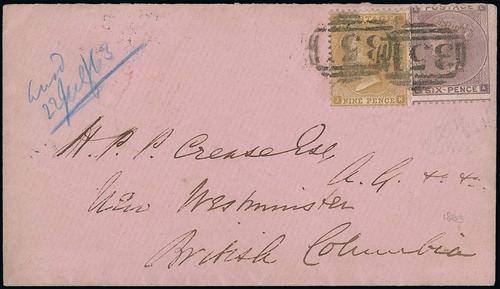 POSTAGE
POSTAGE
35 35
NINE PENCE
SIX-PENCE A
22/July/63
H. P. P. Crease Esq,
A. G. & &
New Westminster
1863
British Columbia